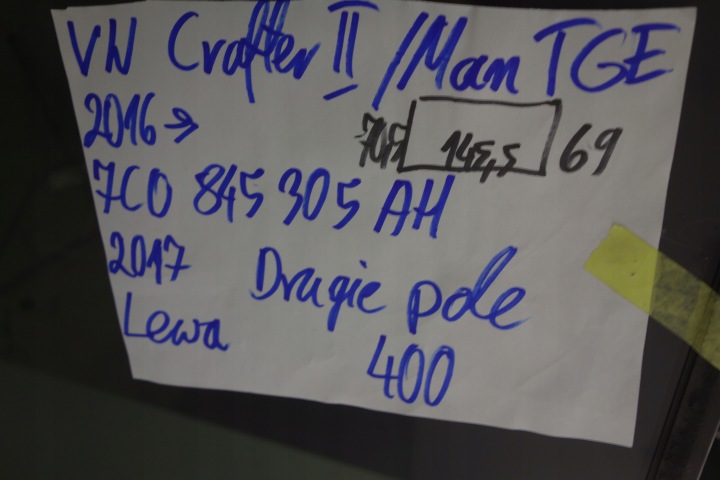 VN Crafter II / Man TGE
2016 →
145,5 69
7C0 845 305 AH
2017 Drugie pole
Lewa 400